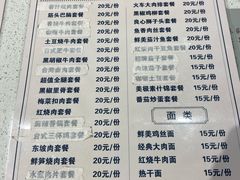 20元/份
筋头巴脑套餐 20元/份
20元/份
土豆烧牛肉套餐 20元/份
20元/份
黑胡椒牛肉套餐 20元/份
20元/份
超值全腿套餐 20元/份
黑椒里脊套餐 20元/份
梅菜扣肉套餐 20元/份
红烧肉套餐 20元/份
20元/份
台式三杯鸡套餐 20元/份
东坡肉套餐 20元/份
鲜笋烧肉套餐 20元/份
水煮肉片套餐 20元/份
火车大肉排套餐 20元/份
黑椒鸡排套餐 20元/份
良心狮子头套餐 20元/份
鱼香肉丝套餐 20元/份
20元/份
20元/份
20元/份
咖喱土豆套餐 20元/份
美极素什锦套餐 20元/份
番茄炒蛋套餐 20元/份
面类
鲜美鸡丝面 15元/份
经典大肉面 15元/份
红烧牛肉面 15元/份
热干面 15元/份